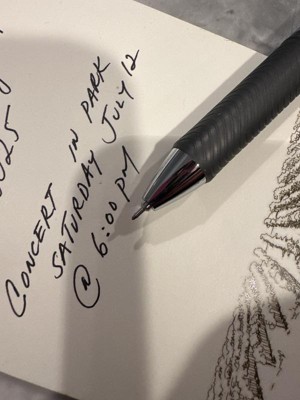 2025
CONCERT IN PARK
SATURDAY JULY 12
@ 6:00 PM